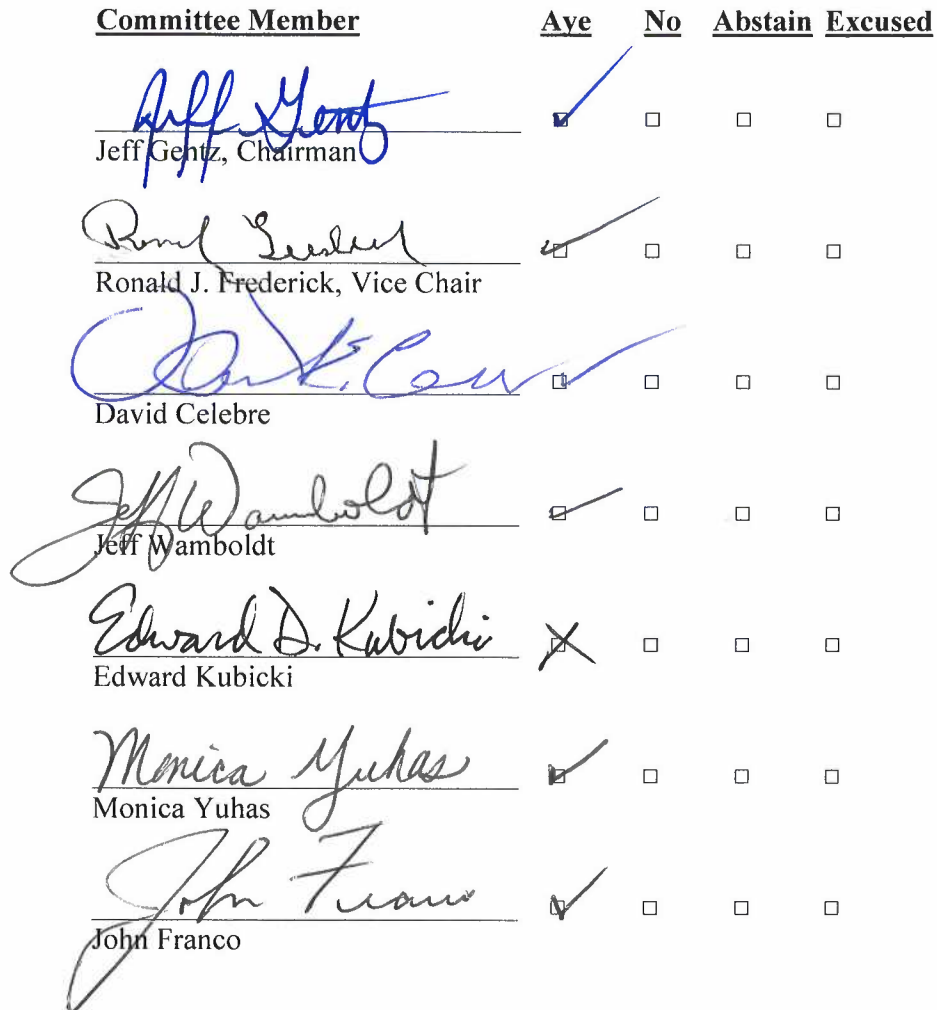 Committee Member Aye No Abstain Excused
Jeff Gentz
Jeff Gentz, Chairman
Ronald J. Frederick, Vice Chair
David Celebre
Jeff Wamboldt
Jeff Wamboldt
Edward D. Kubicki
Edward Kubicki
Monica Yuhas
Monica Yuhas
John Franco
John Franco